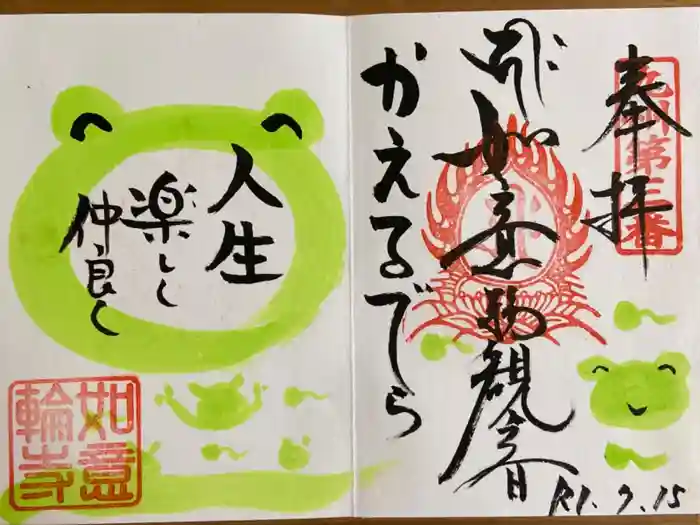 奉拝
九州第三番
如意輪観音
かえるでら
R1.9.15
人生
楽しく
仲良く
如意
輪寺